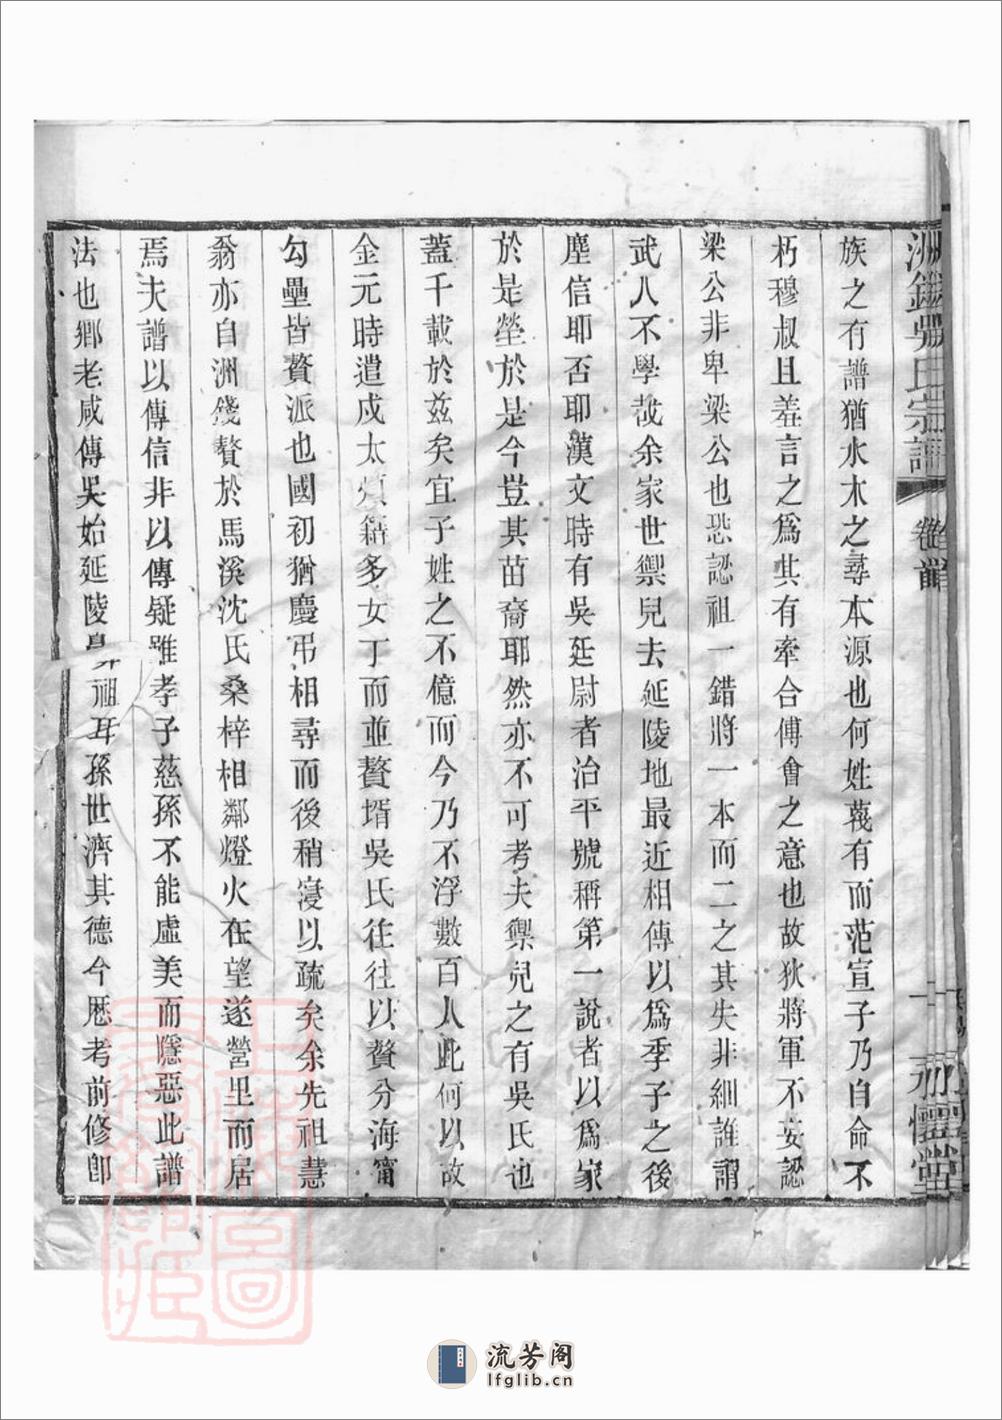 洲錢吳氏宗譜 卷首 一
族之有譜猶水木之尋本源也何姓蔑有而范宣子乃自命不
朽穆叔且羞言之爲其有牽合傅會之意也故狄將軍不妄認
梁公非卑梁公也恐認祖一錯將一本而二之其失非細誰謂
武人不學哉余家世禦兒去延陵地最近相傳以爲季子之後
塵信耶否耶漢文時有吳延尉者治平號稱第一說者以爲家
於是塋於是今豈其苗裔耶然亦不可考夫禦兒之有吳氏也
蓋千載於茲矣宜子姓之不億而今乃不浮數百人此何以故
金元時遣戍太 籍多女丁而並贅壻吳氏往往以贅分海甯
勾壘皆贅派也國初猶慶弔相尋而後稍寖以疏矣余先祖慧
翁亦自洲錢贅於馬溪沈氏桑梓相鄰燈火在望遂營里而居
焉夫譜以傳信非以傳疑雖孝子慈孫不能虛美而隱惡此譜
法也鄉老咸傳吳始延陵鼻祖耳孫世濟其德今厯考前修卽
流芳阁
lfglib.cn